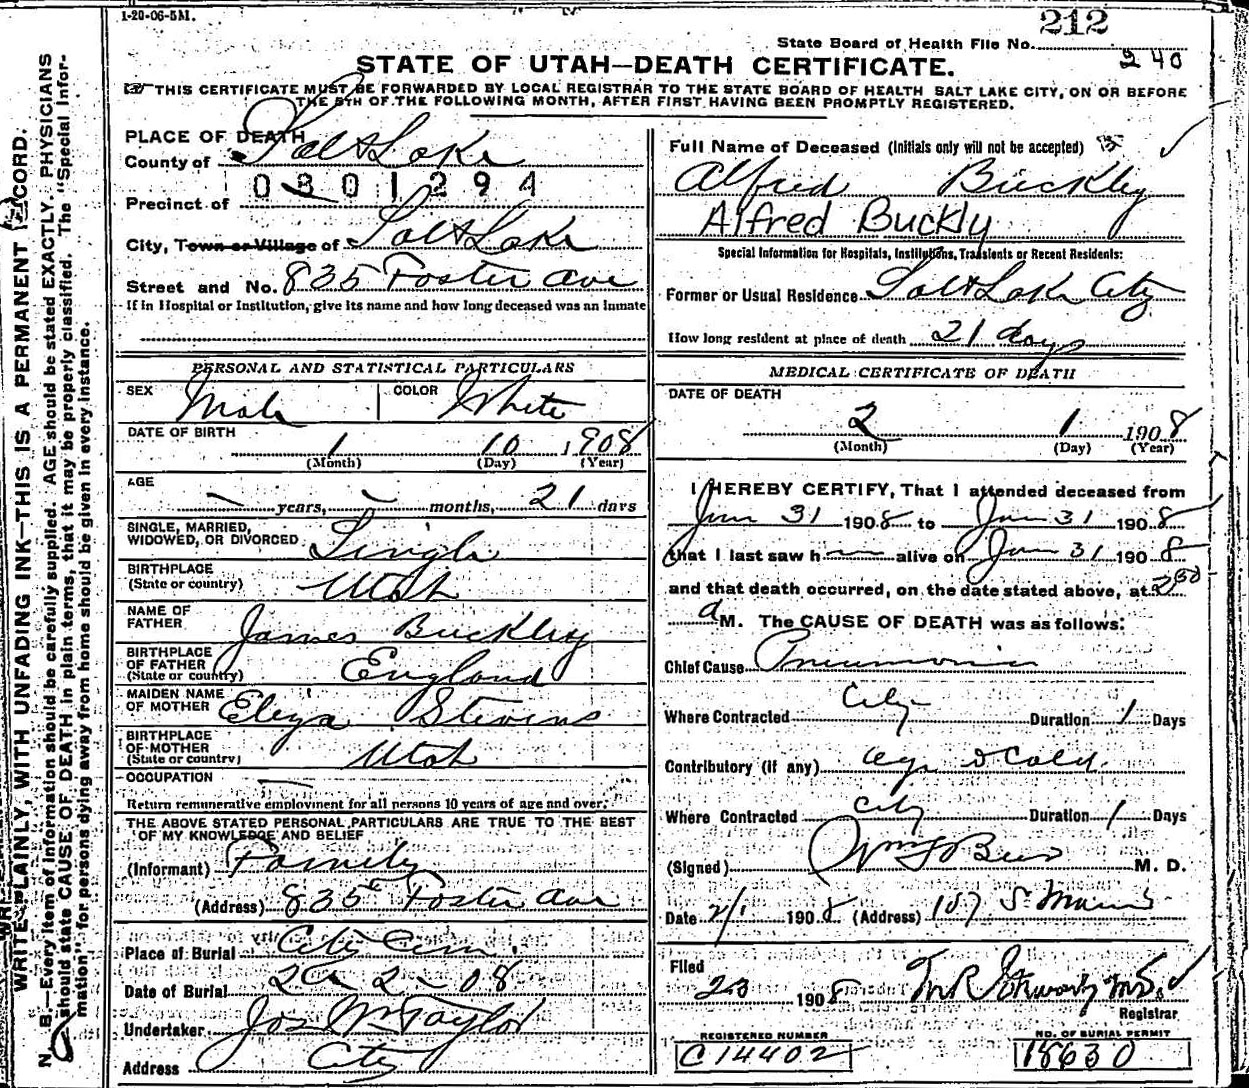 1-20-06-5M.
212
State Board of Health File No.
240
STATE OF UTAH—DEATH CERTIFICATE.
THIS CERTIFICATE MUST BE FORWARDED BY LOCAL REGISTRAR TO THE STATE BOARD OF HEALTH SALT LAKE CITY, ON OR BEFORE
THE 5TH OF THE FOLLOWING MONTH, AFTER FIRST HAVING BEEN PROMPTLY REGISTERED.
WRITE PLAINLY, WITH UNFADING INK—THIS IS A PERMANENT RECORD.
N. B.—Every item of information should be carefully supplied. AGE should be stated EXACTLY. PHYSICIANS
should state CAUSE OF DEATH in plain terms, that it may be properly classified. The "Special Infor-
mation" for persons dying away from home should be given in every instance.
PLACE OF DEATH
County of Salt Lake
0801294
Precinct of
City, Town or Village of Salt Lake
Street and No. 835 Foster Ave
If in Hospital or Institution, give its name and how long deceased was an inmate
PERSONAL AND STATISTICAL PARTICULARS
SEX Male COLOR White
DATE OF BIRTH
1 10 1908
(Month) (Day) (Year)
AGE
— years, — months, 21 days
SINGLE, MARRIED,
WIDOWED, OR DIVORCED Single
BIRTHPLACE
(State or country) Utah
NAME OF
FATHER James Buckley
BIRTHPLACE
OF FATHER
(State or country) England
MAIDEN NAME
OF MOTHER Eliza Stevens
BIRTHPLACE
OF MOTHER
(State or country) Utah
OCCUPATION —
Return remunerative employment for all persons 10 years of age and over.
THE ABOVE STATED PERSONAL PARTICULARS ARE TRUE TO THE BEST
OF MY KNOWLEDGE AND BELIEF
(Informant) Family
(Address) 835 Foster Ave
Place of Burial City Cem.
Date of Burial 2 - 2 - 08
Undertaker Jos Wm Taylor
Address City
Full Name of Deceased (Initials only will not be accepted)
Alfred Buckley
Alfred Buckly
Special Information for Hospitals, Institutions, Transients or Recent Residents:
Former or Usual Residence Salt Lake City
How long resident at place of death 21 days
MEDICAL CERTIFICATE OF DEATH
DATE OF DEATH
2 1 1908
(Month) (Day) (Year)
I HEREBY CERTIFY, That I attended deceased from
Jan 31 1908 to Jan 31 1908
that I last saw h— alive on Jan 31 1908
and that death occurred, on the date stated above, at 2 30
a M. The CAUSE OF DEATH was as follows:
Chief Cause Pneumonia
Where Contracted City Duration 1 Days
Contributory (if any) age & Cold.
Where Contracted City Duration 1 Days
(Signed) M. D.
Date 2/1 1908 (Address) 107 S. Main
Filed
1908
Registrar
REGISTERED NUMBER
C 14402
NO. OF BURIAL PERMIT
18630